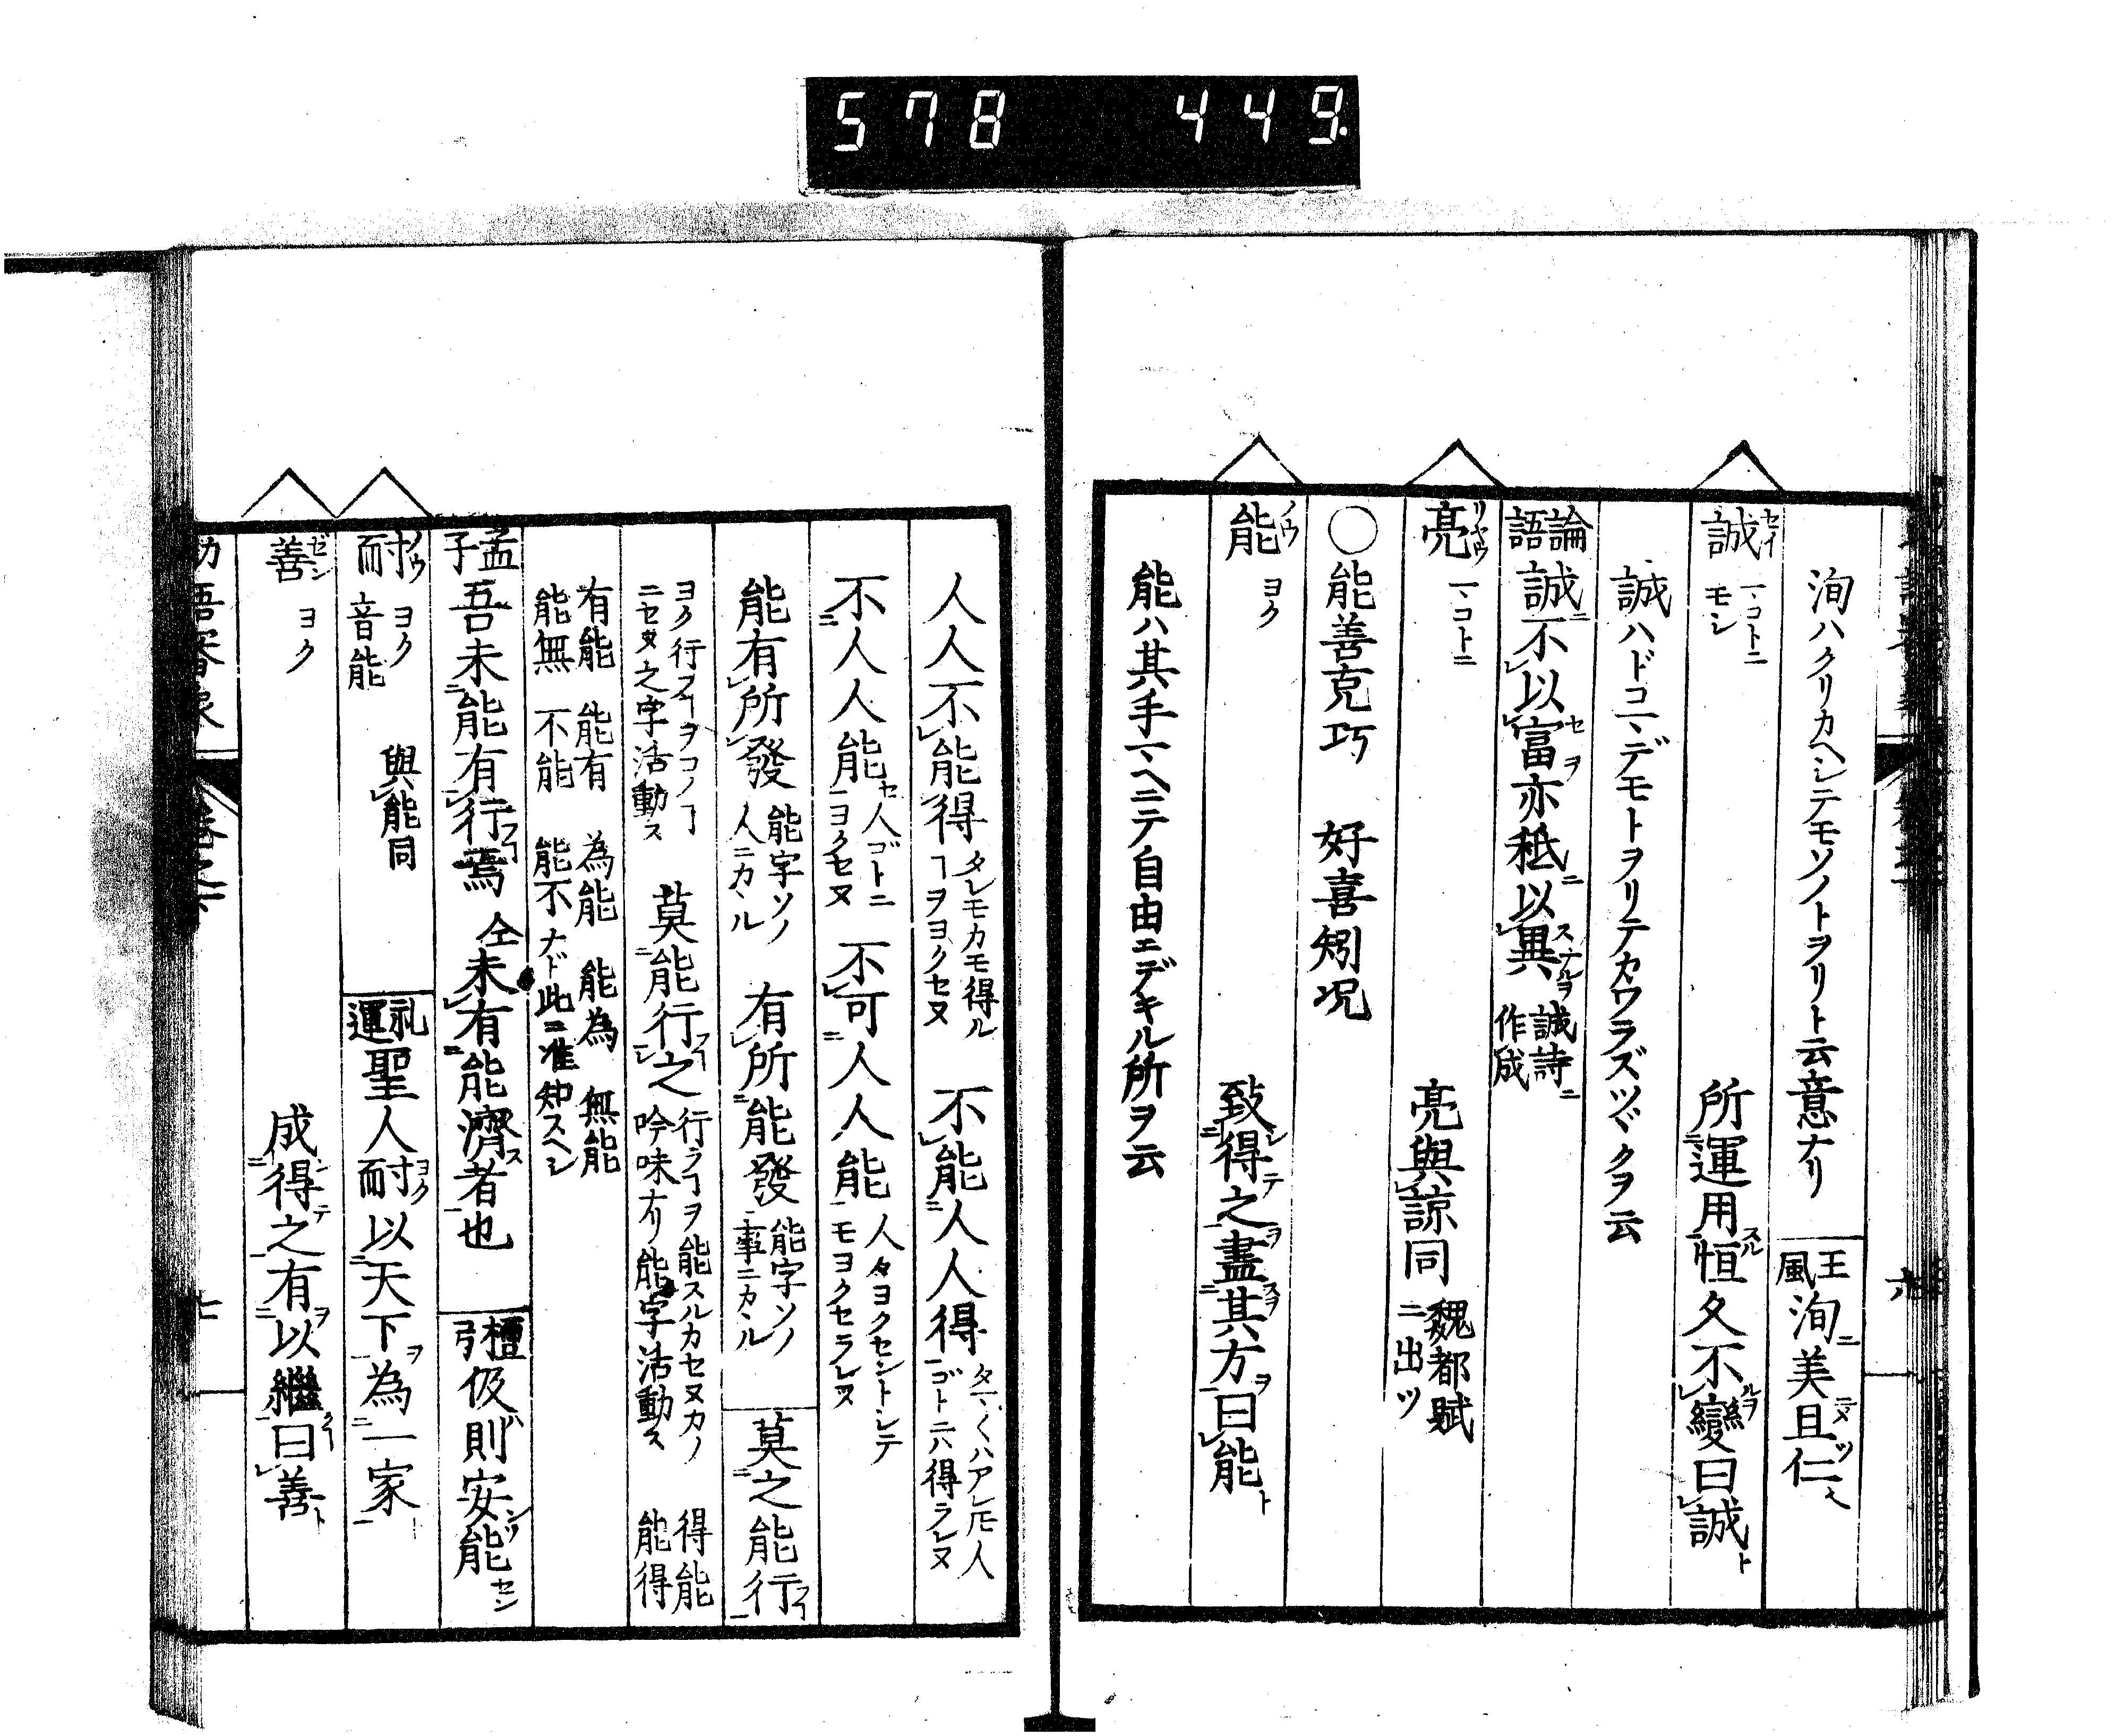 578 449
洵ハクリカヘシテモソノトヲリト云意ナリ 王風 洵ニ美ニメ且ツ仁
誠 セイ マコトニ モシ 所運用スル恒久不變ルヲ曰誠ト
誠ハドコマデモトヲリテカワラズツヾクヲ云
論語 誠ニ不以富セヲ亦秖ニ以異スナルヲ 誠詩ニ作成
亮 リヤウ マコトニ 亮與諒同 魏都賦ニ出ツ
○能善克巧 好喜矧况
能 ノウ ヨク 致シ得テ之ヲ盡スヲ其方ヲ曰能ト
能ハ其手マヘニテ自由ニデキル所ヲ云
人人不能得 タレモカモ得ルヿヲヨクセヌ 不能人人得 タマ〱ハアレ𪜈人ゴトニハ得ラレヌ
不人人能セ 人ゴトニヨクセヌ 不可人人能 人々ヨクセントシテモヨクセラレヌ
能有所發 能字ソノ人ニカヽル 有所能發 能字ソノ事ニカヽル 莫之能行フヿ
ヨク行フヿヲコノヿニセヌ之字活動ス 莫能行フヿ之 行ラヿヲ能スルカセヌカノ吟味有リ能字活動ス 得能 能得
有能 能有 為能 能為 無能 能無 不能 能不ナド此ニ准知スヘシ
孟子 吾未能有行フヿ焉 仝 未有能濟ス者也 檀弓 伋則ハ安シソ能セン
耐 ノウ ヨク 音能 與能同 礼運 聖人耐ヨク以天下ヲ為一家
善 ゼン ヨク 成得テ之有ヲ以繼クヿ曰善ト
七
六